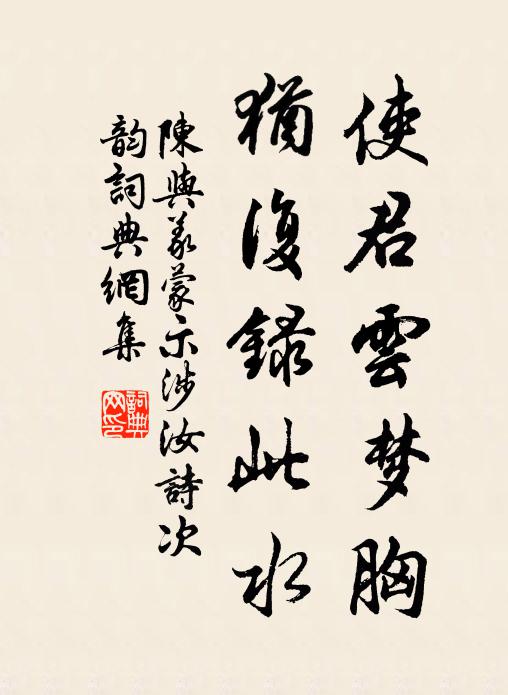 使君雲梦胸
猶復錄此水
陳與義蒙示涉汝詩次
韵詞典網集
詞典
网印